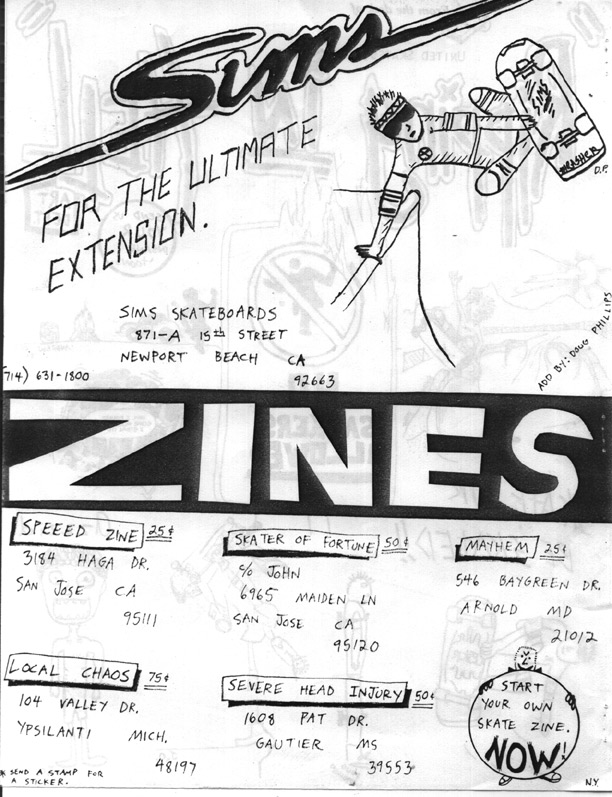 Sims
FOR THE ULTIMATE
EXTENSION.
SIMS
THRASHER
D.P.
SIMS SKATEBOARDS
871-A 15th STREET
NEWPORT BEACH CA
92663
714) 631-1800
ADD BY: DOUG PHILLIPS
ZINES
SPEEED ZINE 25¢
3184 HAGA DR.
SAN JOSE CA
95111
SKATER OF FORTUNE 50¢
c/o JOHN
6965 MAIDEN LN
SAN JOSE CA
95120
MAYHEM 25¢
546 BAYGREEN DR.
ARNOLD MD
21012
LOCAL CHAOS 75¢
104 VALLEY DR.
YPSILANTI MICH.
48197
* SEND A STAMP FOR
A STICKER.
SEVERE HEAD INJURY 50¢
1608 PAT DR.
GAUTIER MS
39553
START
YOUR OWN
SKATE ZINE.
NOW!
N.Y.